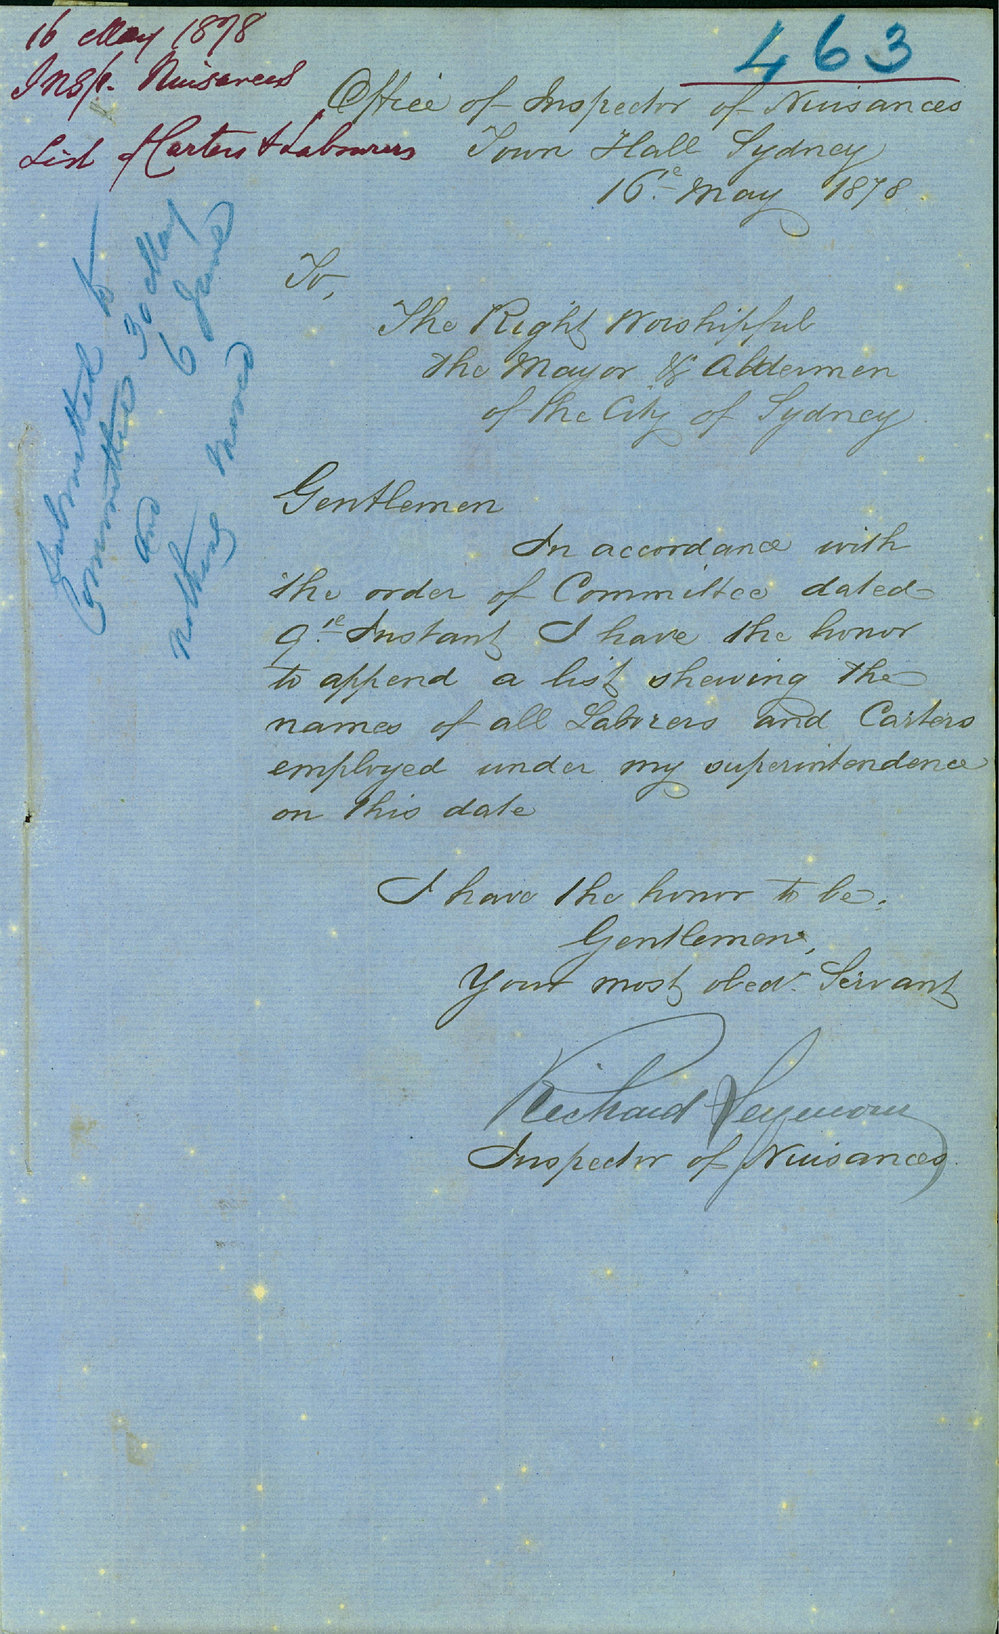 463
16 May 1878
Insp. Nuisances
List of Carters & Labourers
Office of Inspector of Nuisances
Town Hall Sydney
16e May 1878.
Submitted to
Committee 30 May
and 6 June
nothing moved
To,
The Right Worshipful
the Mayor & Aldermen
of the City of Sydney
Gentlemen
In accordance with
the order of Committee dated
9e Instant I have the honor
to append a list shewing the
names of all Laborers and Carters
employed under my superintendence
on this date
I have the honor to be,
Gentlemen,
Your most obedt Servant
Richard Seymour
Inspector of Nuisances.